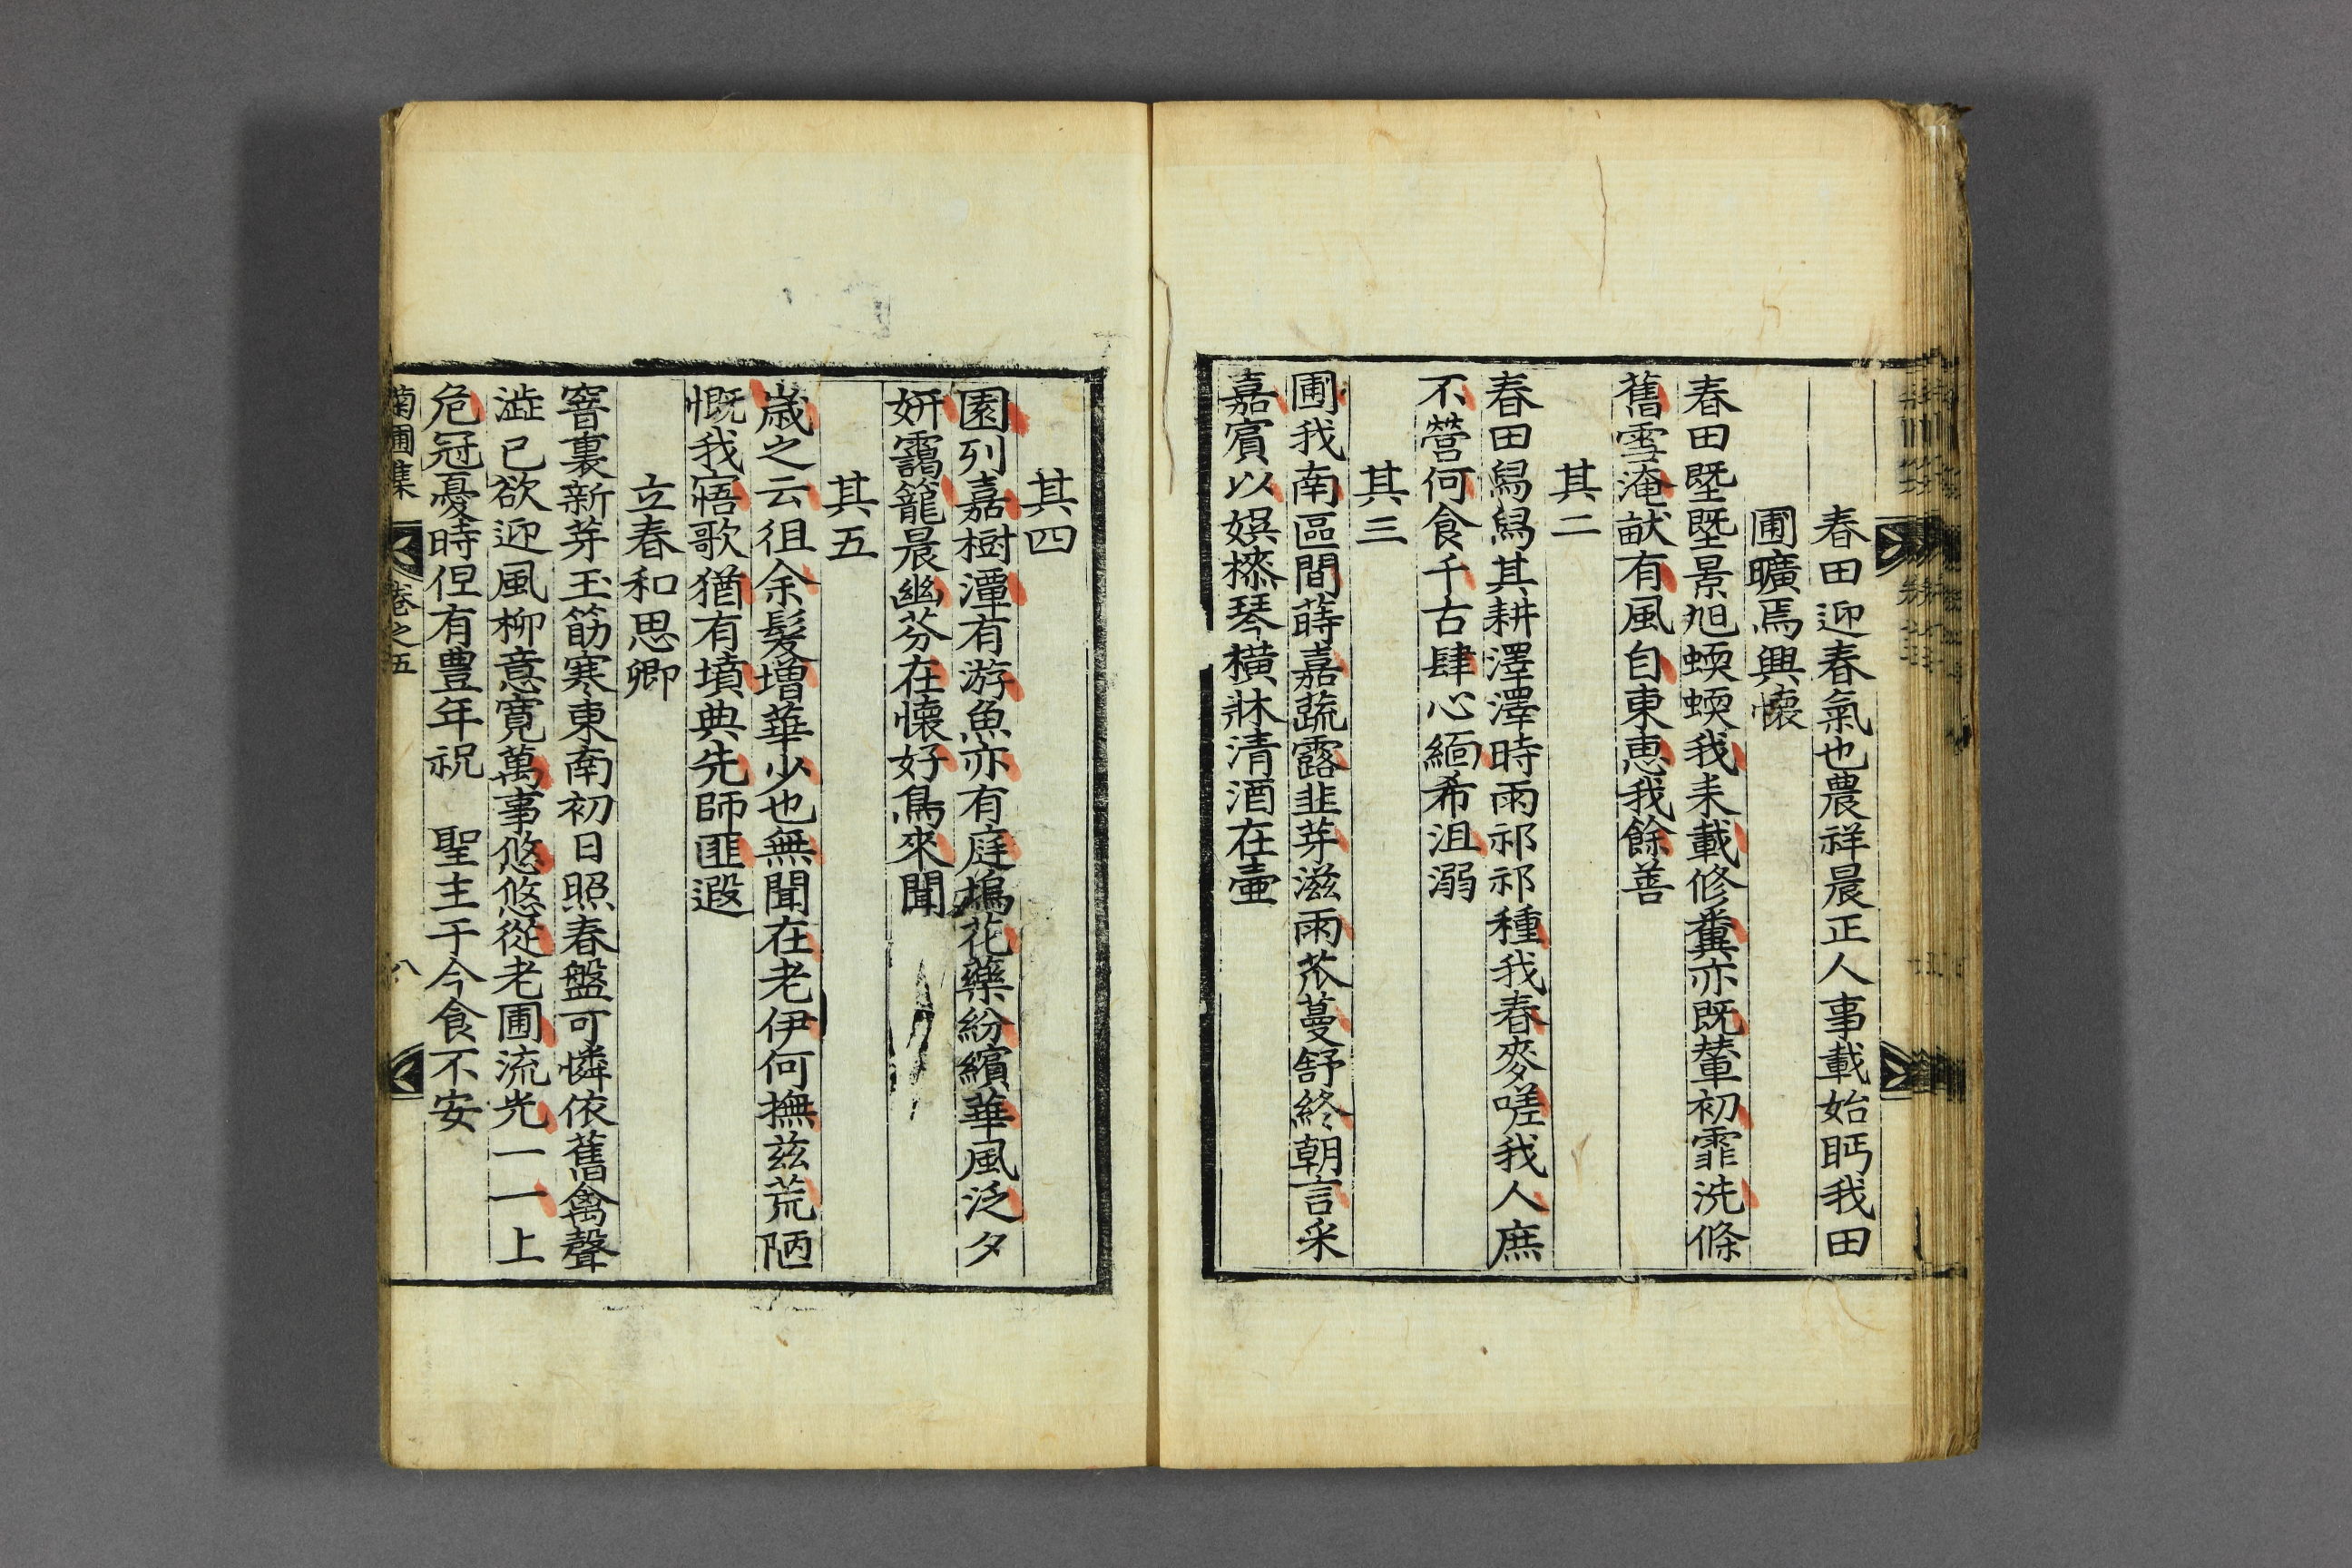 春田迎春氣也農祥晨正人事載始眄我田
圃曠焉興懷
春田墍墍景旭蝡蝡我耒載修糞亦既輦初霏洗條
舊雪淹畝有風自東惠我餘善
其二
春田舄舄其耕澤澤時雨祁祁種我春麥嗟我人庶
不營何食千古肆心緬希沮溺
其三
圃我南區間蒔嘉蔬露韭芽滋雨苽蔓舒終朝言采
嘉賓以娯搽琴橫牀清酒在壷
其四
園列嘉樹潭有游魚亦有庭塢花藥紛繽華風泛夕
妍靄籠晨幽芬在懷好鳥來聞
其五
歲之云徂余髮增華少也無聞在老伊何撫兹荒陋
慨我寤歌猶有墳典先師匪遐
立春和思卿
窨裏新芽玉筯寒東南初日照春盤可憐依舊禽聲
澁已欲迎風柳意寬萬事悠悠從老圃流光一一上
危冠憂時但有豊年祝 聖主于今食不安
菊圃集 卷之五 八